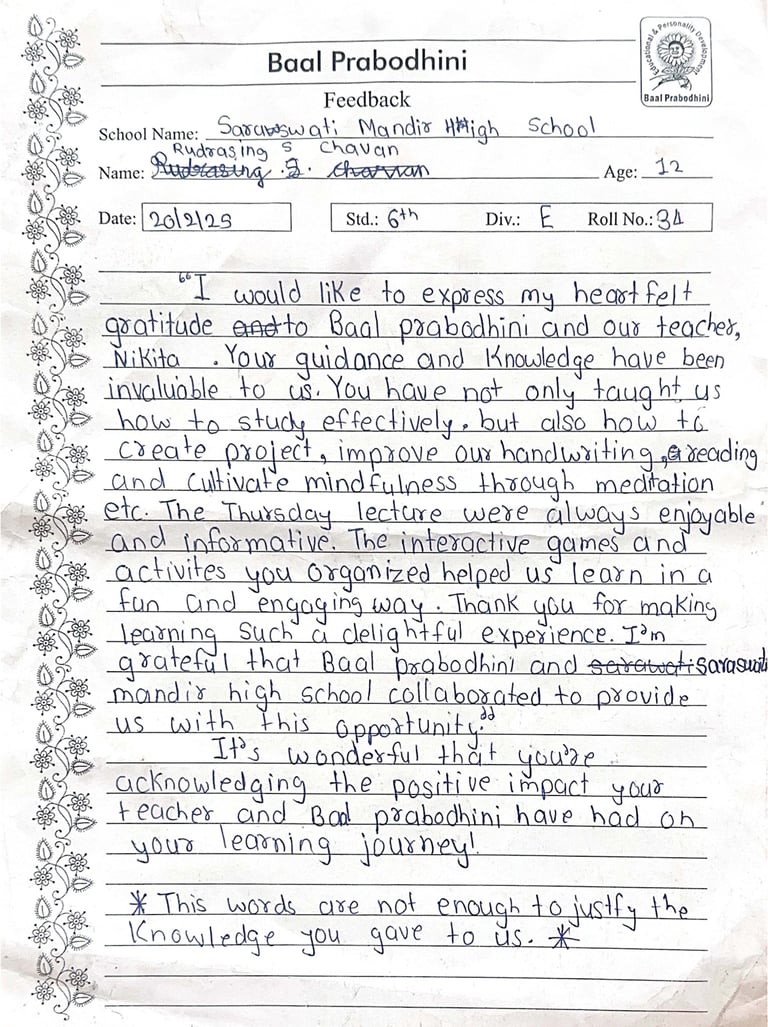 Baal Prabodhini
Educational & Personality Development
Baal Prabodhini
Feedback
School Name: Saraswati Mandir High School
Rudrasing S Chavan
Name: Rudrasing .S. Chavan Age: 12
Date: 20/2/25 Std.: 6th Div.: E Roll No.: 34
"I would like to express my heartfelt
gratitude and to Baal prabodhini and our teacher,
Nikita . Your guidance and Knowledge have been
invaluable to us. You have not only taught us
how to study effectively, but also how to
create project, improve our handwriting, reading
and cultivate mindfulness through meditation
etc. The Thursday lecture were always enjoyable
and informative. The interactive games and
activites you organized helped us learn in a
fun and engaging way. Thank you for making
learning such a delightful experience. I'm
grateful that Baal prabodhini and sarawati saraswati
mandir high school collaborated to provide
us with this opportunity."
It's wonderful that you're
acknowledging the positive impact your
teacher and Baal prabodhini have had on
your learning journey!
* This words are not enough to justfy the
Knowledge you gave to us. *